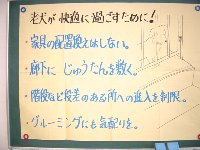 老犬が快適に過ごすために！
・家具の配置換えはしない。
・廊下にじゅうたんを敷く。
・階段など段差のある所への進入を制限。
・グルーミングにも気配りを。